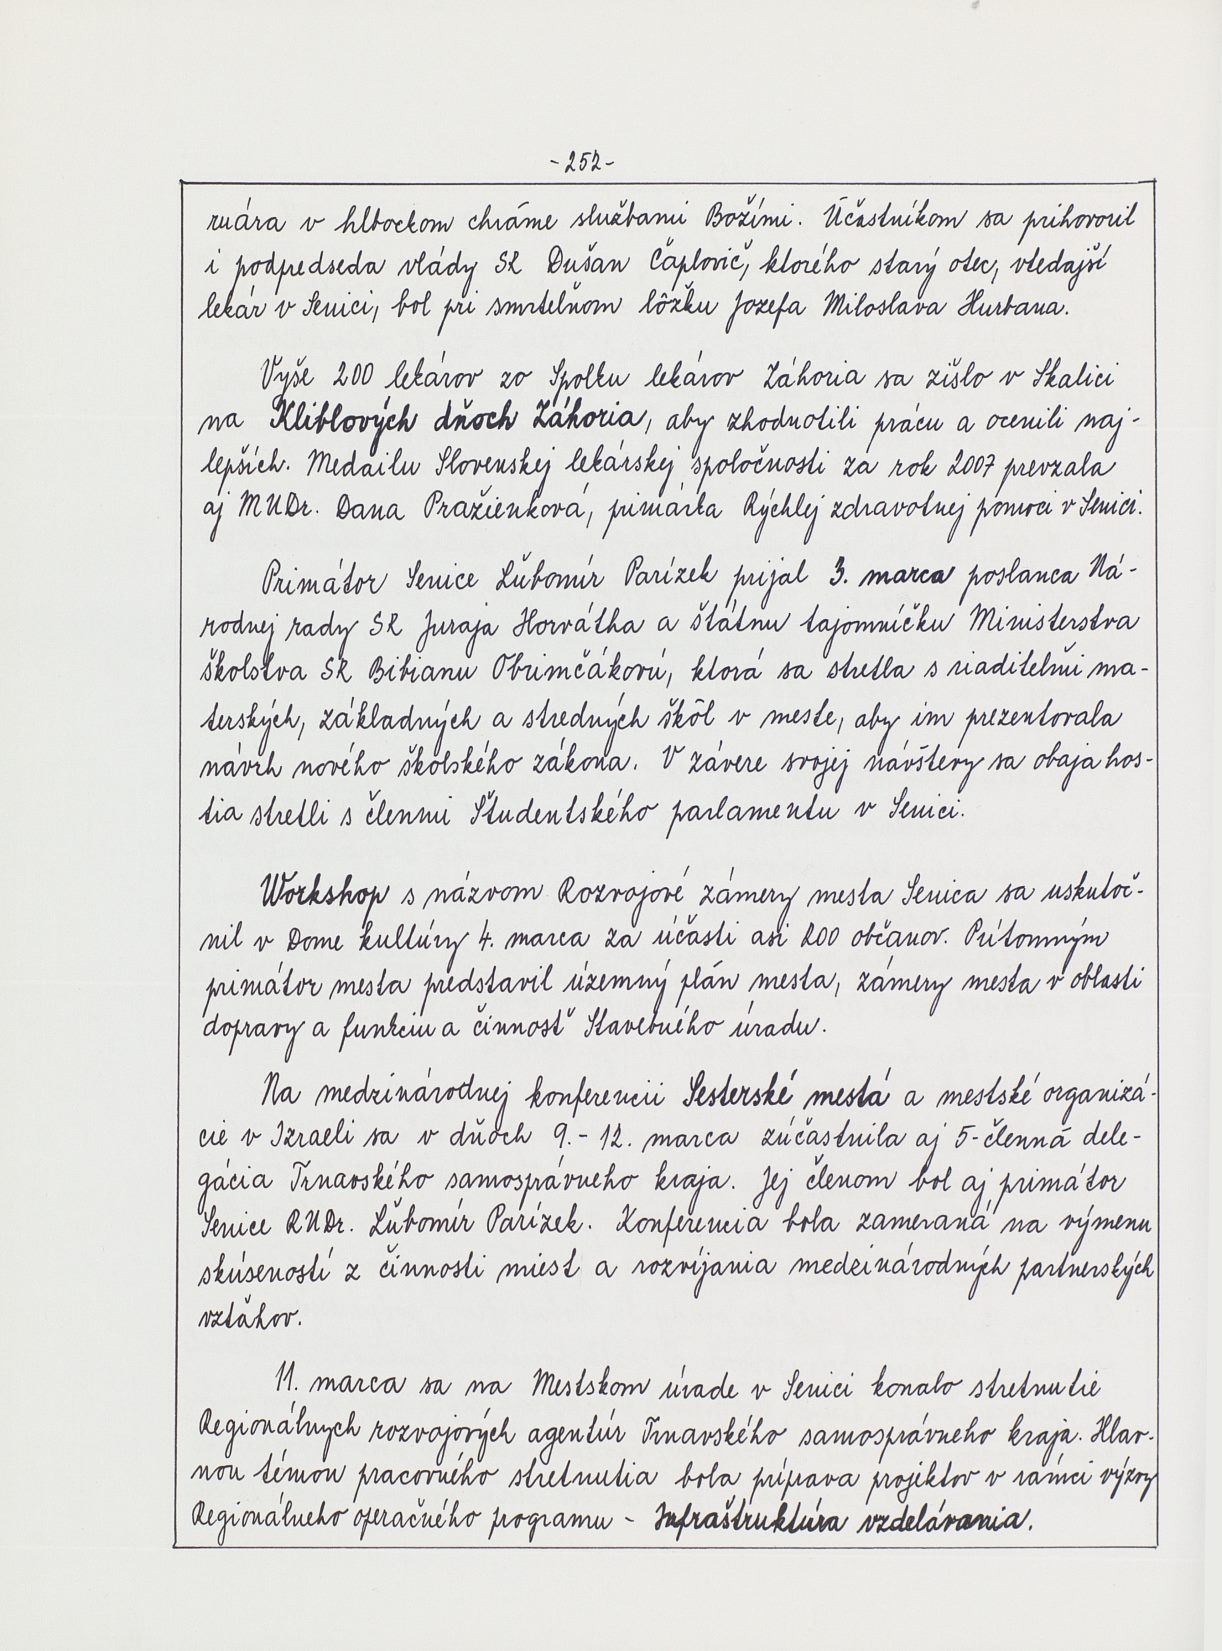 -252-
ruára v hlbockom chráme službami Božími. Účastníkom sa prihovoril
i podpredseda vlády SR Dušan Čaplovič, ktorého starý otec, vtedajší
lekár v Senici, bol pri smrteľnom lôžku Jozefa Miloslava Hurbana.
Vyše 200 lekárov zo Spolku lekárov Záhoria sa zišlo v Skalici
na Kliblových dňoch Záhoria, aby zhodnotili prácu a ocenili naj-
lepších. Medailu Slovenskej lekárskej spoločnosti za rok 2007 prevzala
aj MUDr. Dana Pražienková, primárka Rýchlej zdravotnej pomoci v Senici.
Primátor Senice Ľubomír Parízek prijal 3. marca poslanca Ná-
rodnej rady SR Juraja Horvátha a štátnu tajomníčku Ministerstva
školstva SR Bibianu Obrimčákovú, ktorá sa stretla s riaditeľmi ma-
terských, základných a stredných škôl v meste, aby im prezentovala
návrh nového školského zákona. V závere svojej návštevy sa obaja hos-
tia stretli s členmi Študentského parlamentu v Senici.
Workshop s názvom Rozvojové zámery mesta Senica sa uskutoč-
nil v Dome kultúry 4. marca za účasti asi 200 občanov. Prítomným
primátor mesta predstavil územný plán mesta, zámery mesta v oblasti
dopravy a funkciu a činnosť Stavebného úradu.
Na medzinárodnej konferencii Sesterské mestá a mestské organizá-
cie v Izraeli sa v dňoch 9.-12. marca zúčastnila aj 5-členná dele-
gácia Trnavského samosprávneho kraja. Jej členom bol aj primátor
Senice RNDr. Ľubomír Parízek. Konferencia bola zameraná na výmenu
skúseností z činnosti miest a rozvíjania medzinárodných partnerských
vzťahov.
11. marca sa na Mestskom úrade v Senici konalo stretnutie
Regionálnych rozvojových agentúr Trnavského samosprávneho kraja. Hlav-
nou témou pracovného stretnutia bola príprava projektov v rámci výzvy
Regionálneho operačného programu - Infraštruktúra vzdelávania.